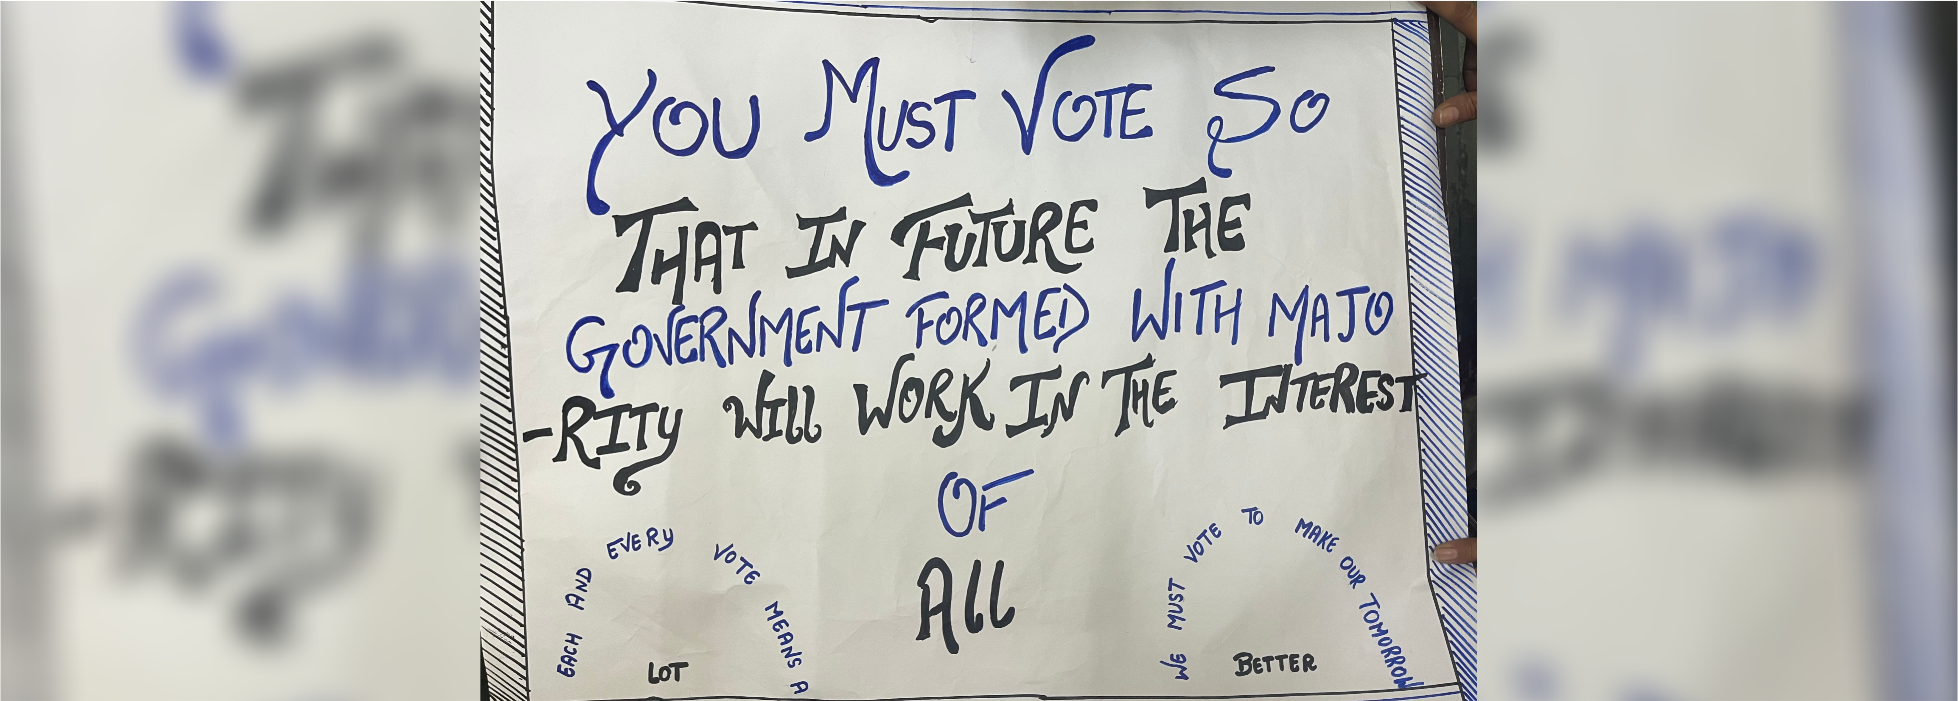 YOU MUST VOTE SO
THAT IN FUTURE THE
GOVERNMENT FORMED WITH MAJO
-RITY WILL WORK IN THE INTEREST
OF
ALL
EACH AND EVERY VOTE MEANS A
LOT
WE MUST VOTE TO MAKE OUR TOMORROW
BETTER